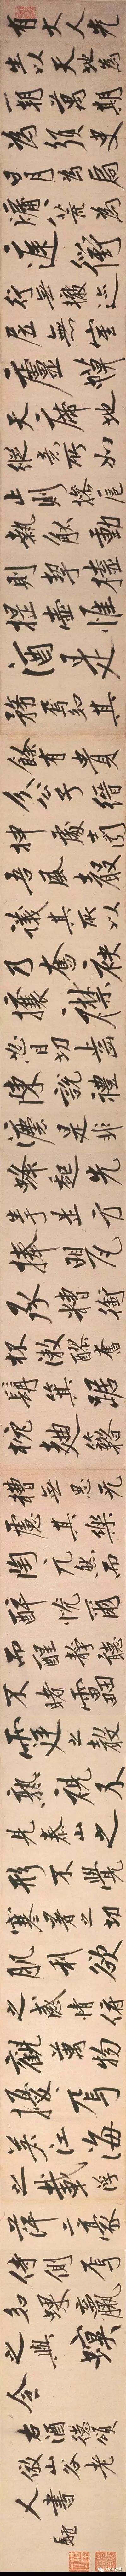 有大人先
生以天地為
一朝萬期
為須臾
日月為扃
牖八荒為
庭衢
行無轍迹
居無室
廬幕
天席地
縱意所如
止則操巵
執觚動
則挈榼
提壺惟
酒是
務焉知其
餘有貴
介公子縉
紳處士聞
吾風聲
議其所以
乃奮袂
攘襟
怒目切齒
陳說禮
法是非
鋒起先
生於是方
捧甖
承槽銜
杯漱醪奮
髯箕踞
枕麴藉
糟無思無
慮其樂
陶陶兀然而
醉恍爾
而醒靜聽
不聞雷
霆之聲
熟視不
見泰山之
形不覺
寒暑之切
肌利欲
之感情俯
觀萬物
擾擾焉
如江海
之載浮
萍二豪
侍側焉
如蜾蠃
之與螟
蛉
右酒德頌
倣山谷老
人書